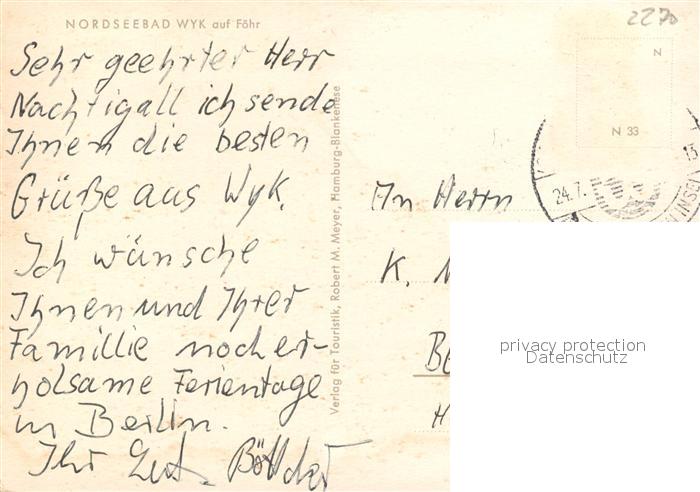 NORDSEEBAD WYK auf Föhr
2270
Sehr geehrter Herr
Nachtigall ich sende
Ihnen die besten
Grüße aus Wyk.
Ich wünsche
Ihnen und Ihrer
Famillie noch er-
holsame Ferientage
in Berlin.
Ihr
Verlag für Touristik, Robert M. Meyer, Hamburg-Blankenese
N
N 33
24.7.
13
An Herrn
K. N
Be
H
privacy protection
Datenschutz